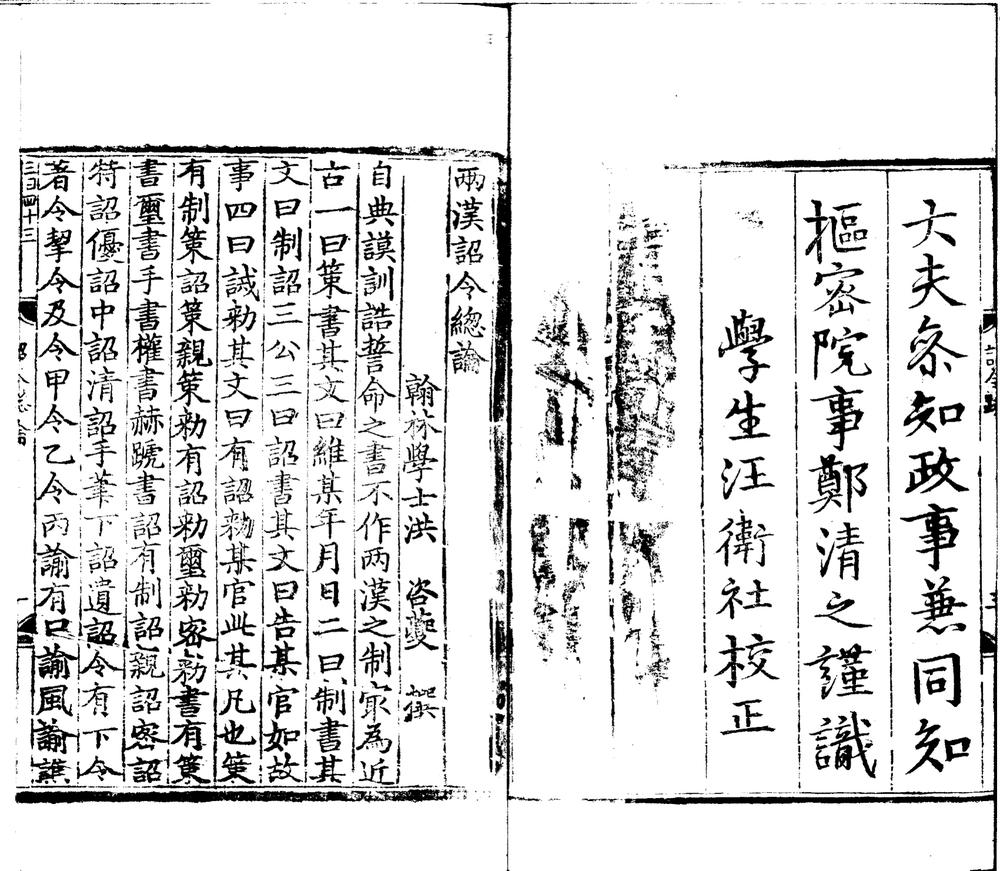 大夫叅知政事兼同知
樞密院事鄭清之謹識
學生汪衢社校正
兩漢詔令總論
翰林學士洪咨夔撰
自典謨訓誥誓命之書不作两漢之制㝡為近
古一曰策書其文曰維某年月日二曰制書其
文曰制詔三公三曰詔書其文曰告某官如故
事四曰誡勑其文曰有詔勑某官此其凡也策
有制策詔策親策勑有詔勑璽勑密勑書有策
書璽書手書權書赫蹏書詔有制詔親詔密詔
特詔優詔中詔清詔手筆下詔遺詔令有下令
著令挈令及令甲令乙令丙諭有口諭風諭譙